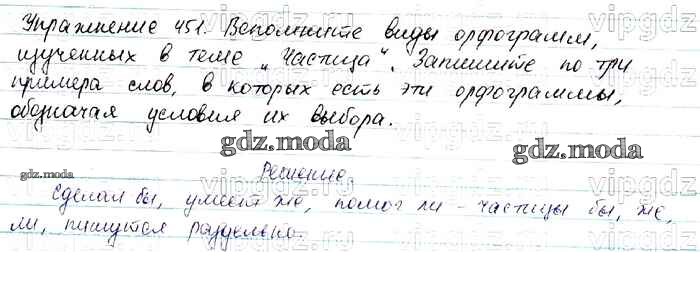 Упражнение 451. Вспомните виды орфограмм,
изученных в теме „Частица“. Запишите по три
примера слов, в которых есть эти орфограммы,
обозначая условия их выбора.
gdz.moda
gdz.moda
gdz.moda
Решение
Сделал бы, умеет же, помог ли - частицы бы, же,
ли, пишутся раздельно.